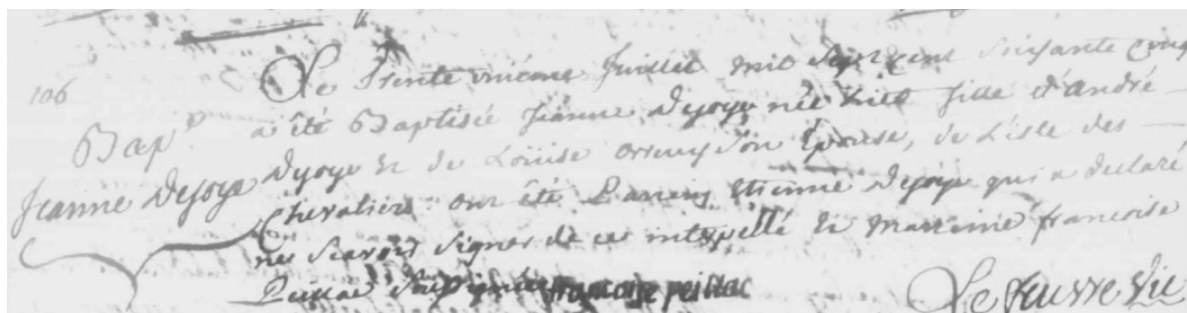 106
Bap^e
Jeanne Dejoye
Le trente unième Juillet mil Sept Cent Soixante cinq
a été Baptisée Jeanne Dejoye née hier fille d'André
Dejoye et de Louise Son Epouse, de L'isle des
Chevaliers ont été Parein Etienne Dejoye qui a declaré
ne Scavoir Signer de ce interpellé et Mareine francoise
Peillac Soussignée francoise peillac
Le feuvre Vic